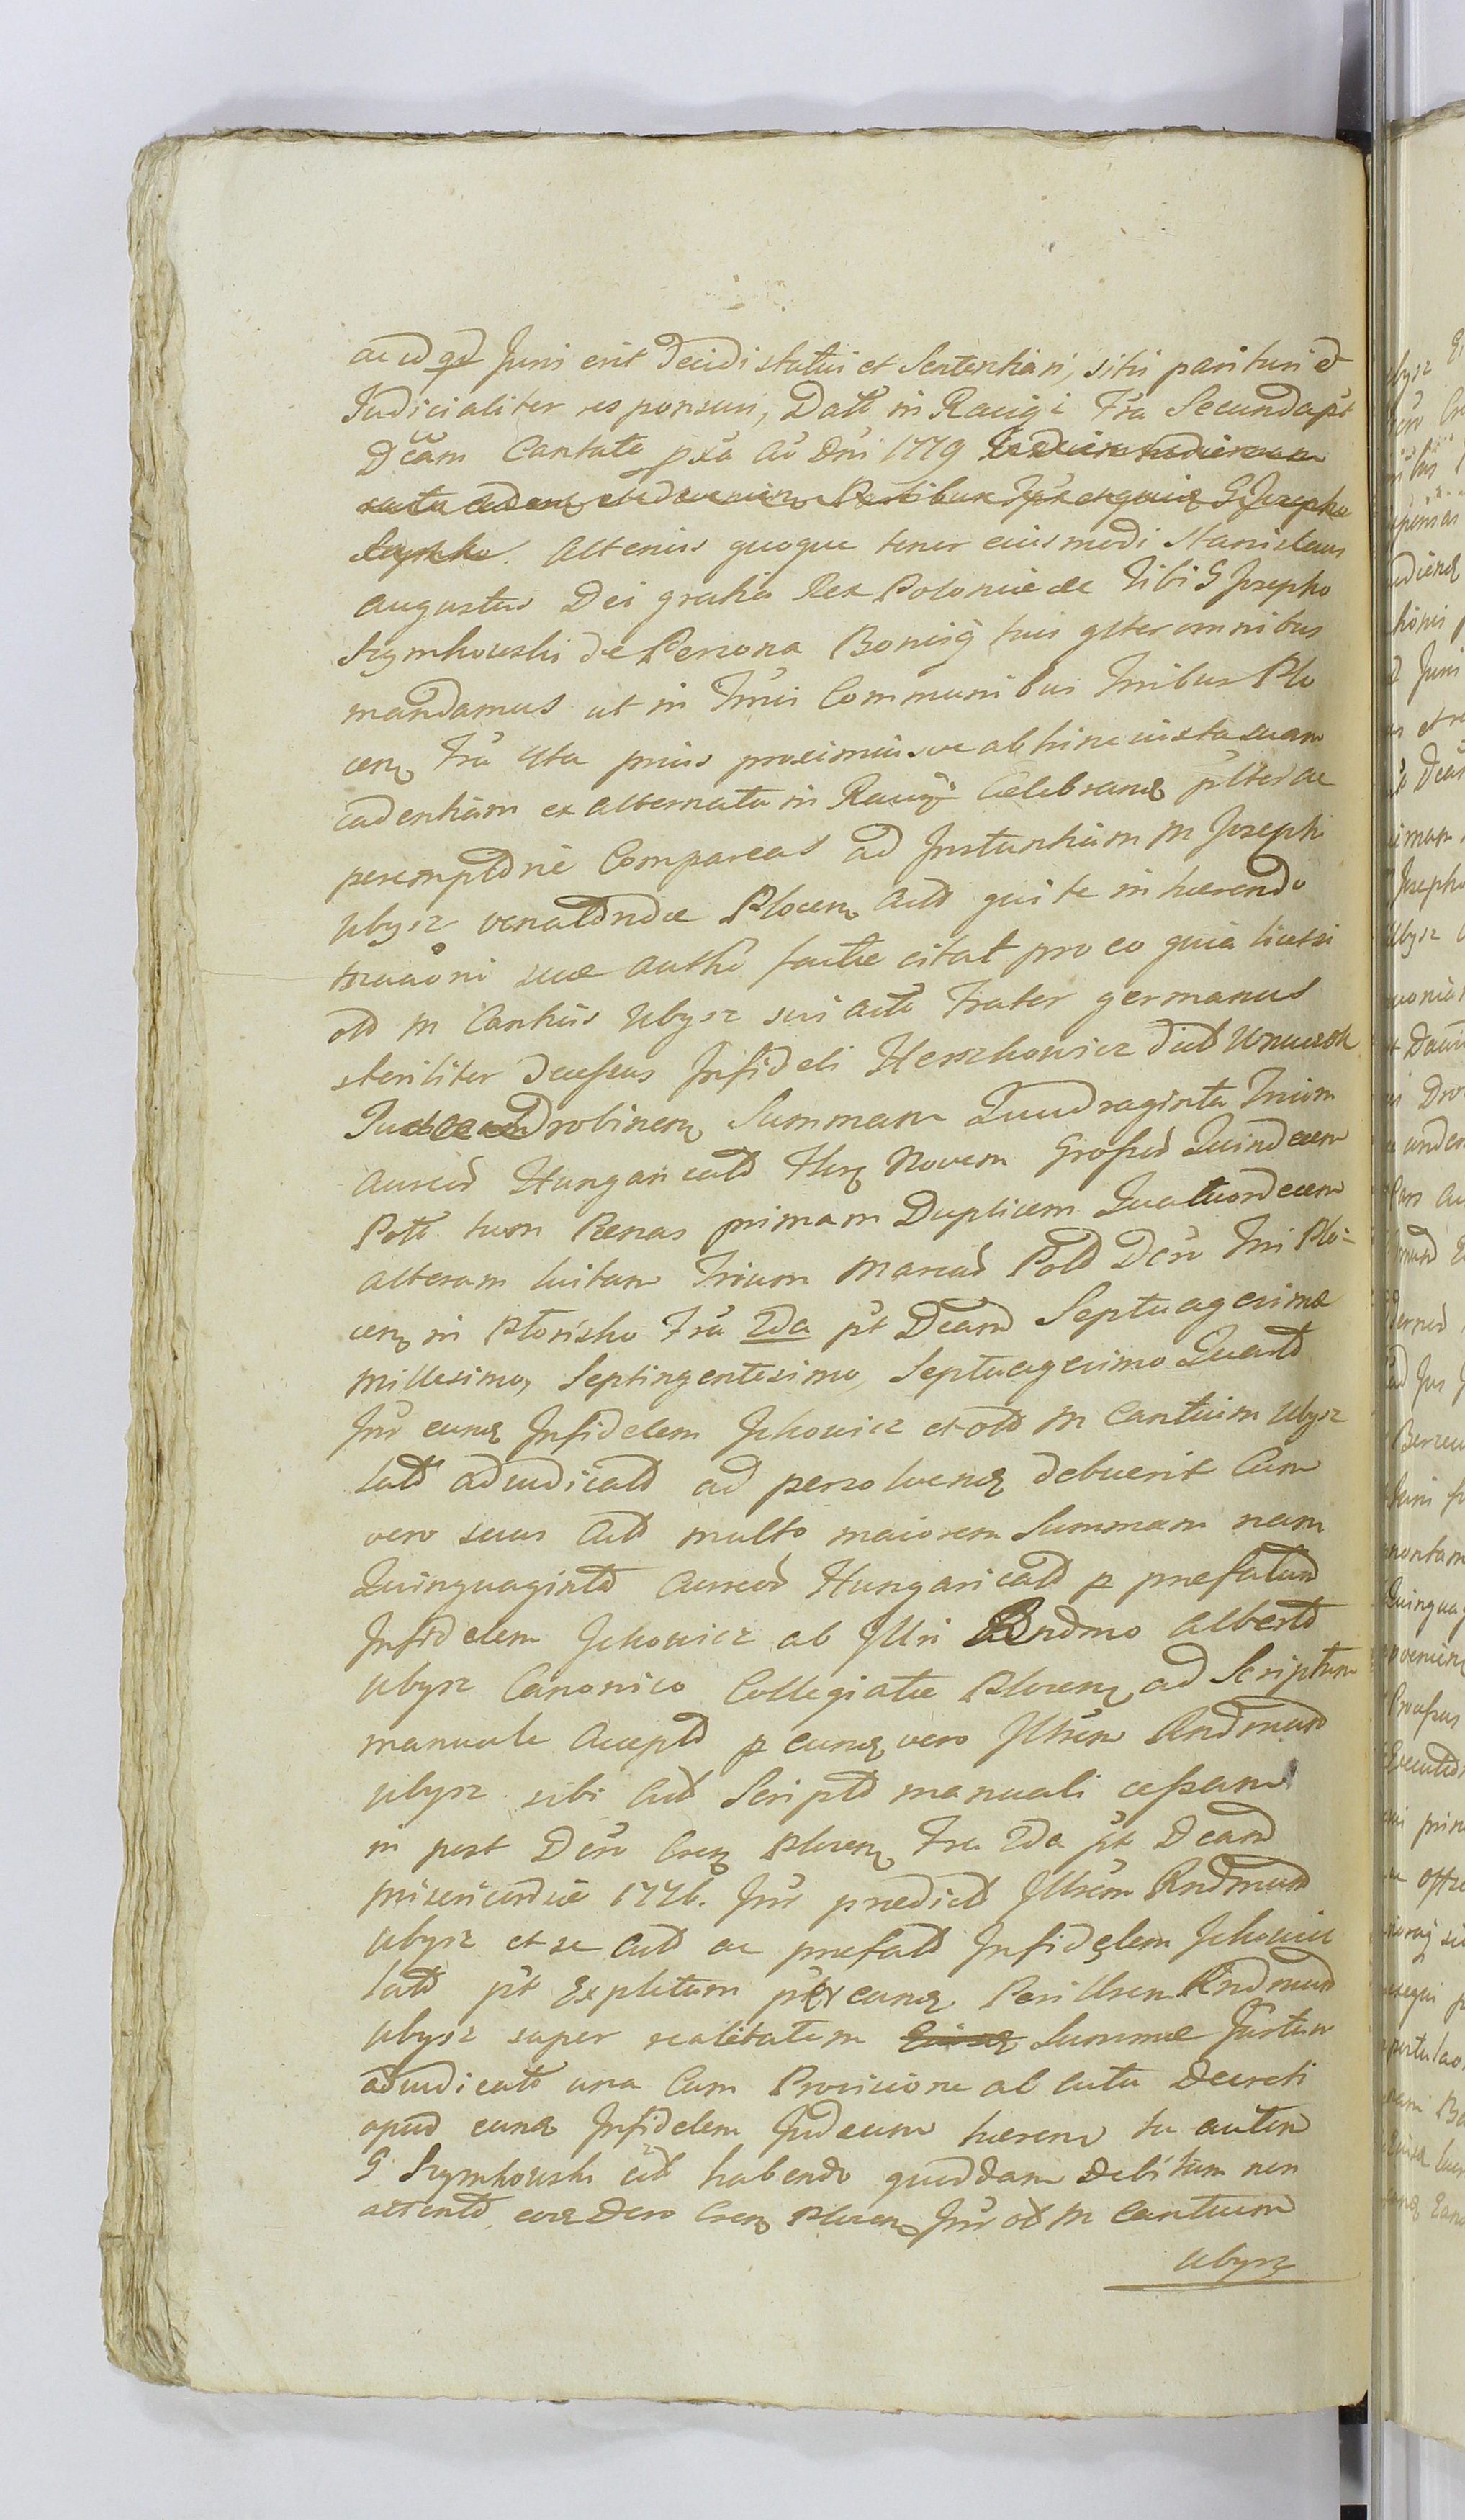 ac id qd Juris erit decidi statui et Sententiari, sitis parituri et
Judicialiter responsuri, Datt in Raciąż Fria Secunda pt
Dcam Cantate pxa Ao Dni 1779
Alterius quoque tenor eiusmodi Stanislaus
Augustus Dei gratia Rex Poloniæ &c Tibi G Josepho
Szymkowski de Persona Bonisq tuis glter omnibus
mandamus ut in Tmis Communibus Tribus Plo
cen Fria 4ta primis proximisve abhinc iuxta suam
cadentiam ex alternata in Raciąż Celebrand plter ac
peremptorie Compareas ad Instantiam M Josephi
Ubysz Plocen Actō qui te inhærendo
suæ factæ citat pro eo quia licet
M Cantius Ubysz sui Actō Frater germanus
steriliter decessus Infideli Herszkowicz dict
Drobinen Summam Quadraginta Trium
Aureor Hungaricalō flen Novem Grossor Quindecem
Poll tum Penas primam Duplicem Quatuordecem
alteram luitam Trium Marcar Pol Dcro Tri Plo-
cen in Plonsko Fria 2da pt Dcam Septuagesimæ
Millesimo, Septingentesimo, Septuagesimo Quartō
Inr eund Infidelem Jckowicz et M Cantium Ubysz
latō adiudicatō ad persolvend debuerit Cum
vero suus Actō multo maiorem Summam nam
Quinquagintā Aureor Hungaricalō p præfatum
Infidelem Jckowicz ab Illri Rndmo Albertō
Ubysz Canonico Collegiatæ Plocen ad Scriptum
manuale Acceptō p eund vero Illrem Rndmum
Ubysz sibi Actō Scriptō manuali cessam
in post Dcro Cren Plocen Fria 2da pt Dcam
Misericordiæ 1776. Inr prædictō Illrem Rndmum
Ubysz et se Actō ac præfatō Infidelem Jckowicz
latō pt Expletum per eund Perillrem Rndmum
Ubysz super realitatem Eiusd Summæ Jurtum
adiudicatō una Cum Provisione ab actu Decreti
apud eund Infidelem Judæum hæren tu autem
G Szymkowski habendo quoddam Debitum non
attentō eod Dcro Cren Plocen Inr M Cantium
Ubysz